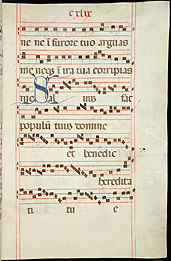 cxlix
ne ne ī furore tuo arguas
me neqꝫ ī ira tua corripias
me Sal uus fac
populū tuus domine
et benedic
heredita
ti tu e